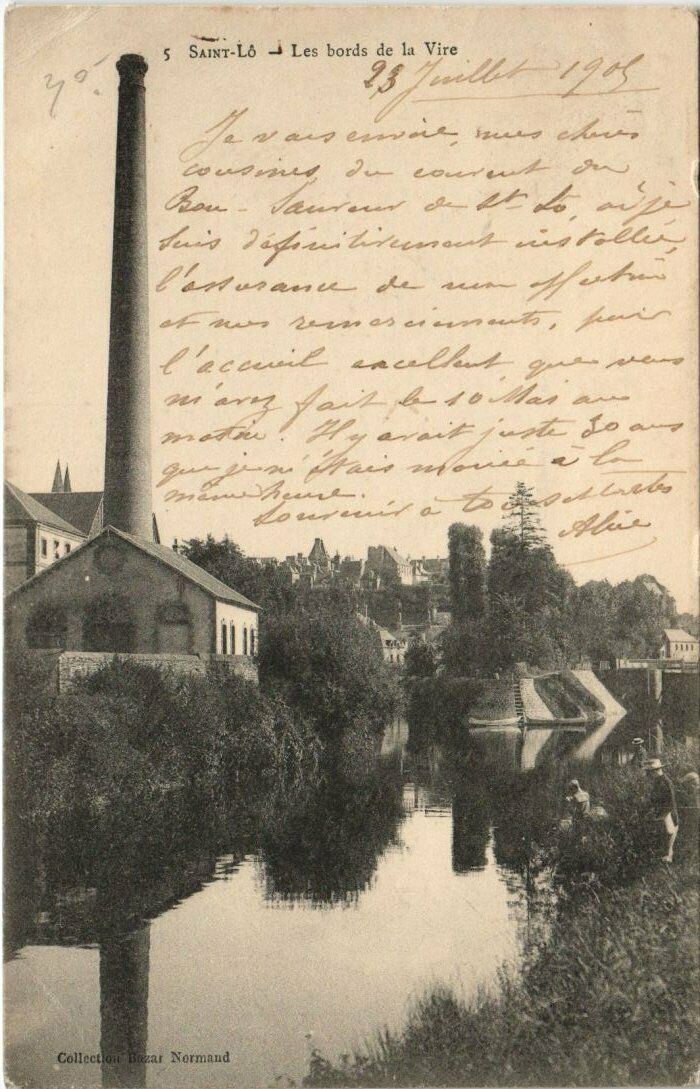 5 SAINT-LÔ — Les bords de la Vire
23 Juillet 1905
Je vous envoie, mes chères
cousines, du couvent du
Bon-Sauveur de St Lô, où je
suis définitivement installée,
l'assurance de mon affection
et mes remerciements, pour
l'accueil excellent que vous
m'avez fait le 10 Mai au
matin. Il y avait juste 30 ans
que je m'étais mariée à la
même heure.
Souvenir à tous et toutes
Aline
Collection Bazar Normand